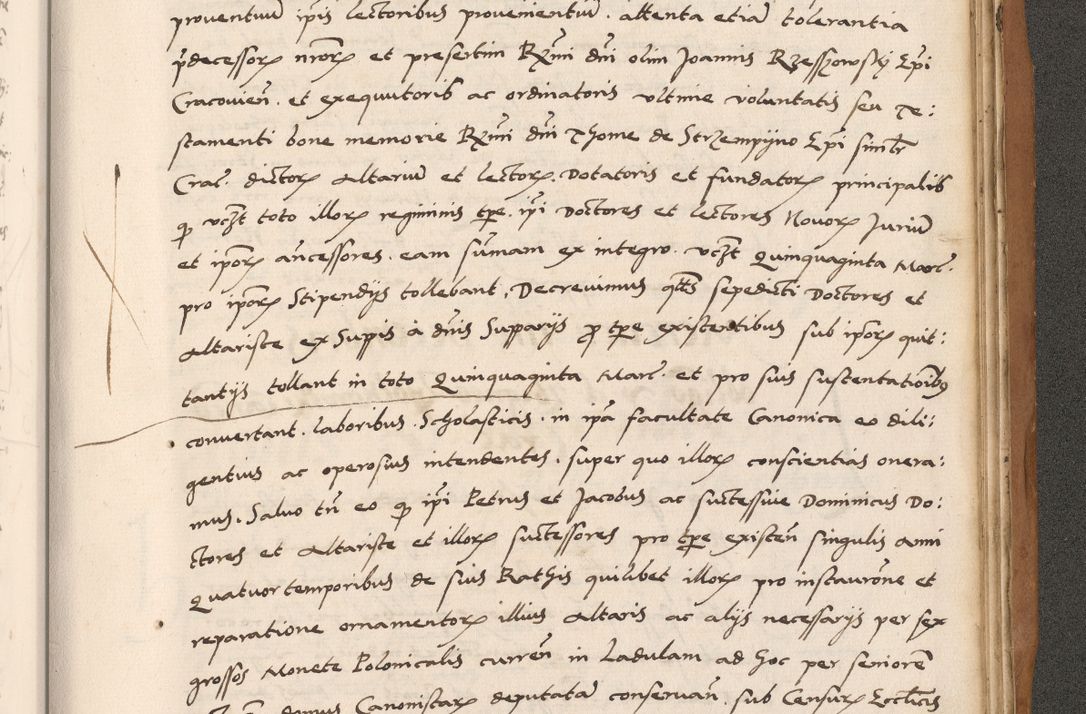 proventuum ip̄is lectoribus provenientium . attenta etiam tolerantia
p̄decessorꝝ nr̄orꝝ et presertim Rxmi dn̄i olim Joannis Rzesszowsky Ep̄i
Cracovien̄ . et exequutoris ac ordinatoris ultime voluntatis seu te:
stamenti bone memorie Rxmi dn̄i Thome de Strzempyno Ep̄i simlr̄
Crac̄ . dictorꝝ Altarium et lectorꝝ . Dotatoris et fundatorꝝ principalis
ꝙ vcz̄t toto illorꝝ regiminis tp̄e . ip̄i Doctores et lectores Novorꝝ Jurium
et ip̄orꝝ an̄cessores . eam sum̄am ex integro . vcz̄t Quinquaginta Marc̄ .
pro ip̄orꝝ Stipendijs tollebant , Decrevimus qt̄s sepedicti Doctores et
Altariste ex Suppis à dn̄is Supparijs p̱ tp̄e existentibus sub ip̄orꝝ quit:
tantijs tollant in toto Quinquaginta Marc̄ . et pro suis sustentationibꝯ
convertant . laboribus . Scholasticis . in ip̄a facultate Canonica eo dili:
gentius ac operosius intendentes . super quo illorꝝ conscientias onera:
mus . Salvo tn̄ eo ꝙ ip̄i Petrus et Jacobus ac successive Dominicus Do:
ctores et Altariste et illorꝝ successores pro tp̄e existen̄ singulis anni
Quatuor temporibus de suis Rathis quilibet illorꝝ pro instauron̄e et
reparatione ornamentorꝝ illius Altaris ac alijs necessarijs per sex
grossos Monete Polonicalis curren̄ in Ladulam ad hoc per seniorem̄
domus Canonistarꝝ deputatam conservan̄ . sub Censurꝝ Eccl̄icis